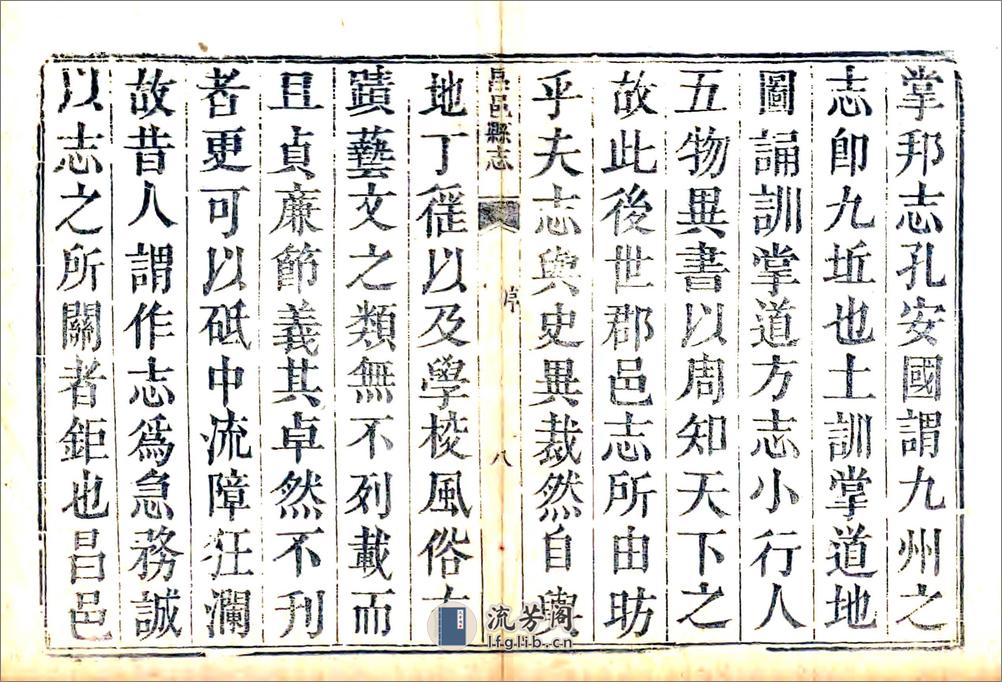 掌邦志孔安國謂九州之
志卽九坵也土訓掌道地
圖誦訓掌道方志小行人
五物異書以周知天下之
故此後世郡邑志所由昉
乎夫志與史異裁然自輿
昌邑縣志
序
八
地丁徭以及學校風俗古
蹟藝文之類無不列載而
且貞廉節義其卓然不刊
者更可以砥中流障狂瀾
故昔人謂作志爲急務誠
以志之所關者鉅也昌邑
流芳阁
lfglib.cn